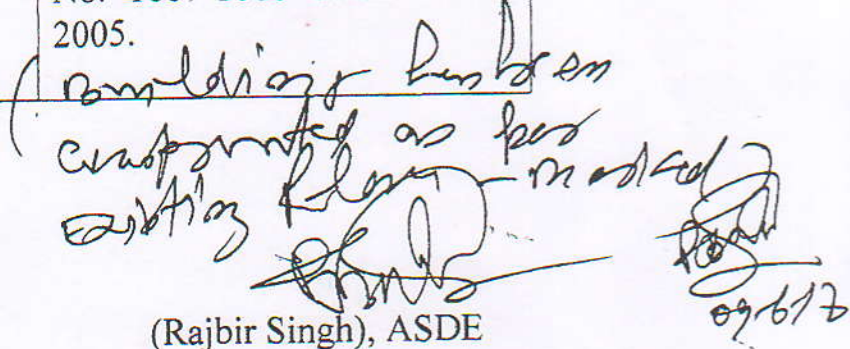 2005.
(Building has been
constructed as per
existing Plan - marked)
09-6-17
(Rajbir Singh), ASDE